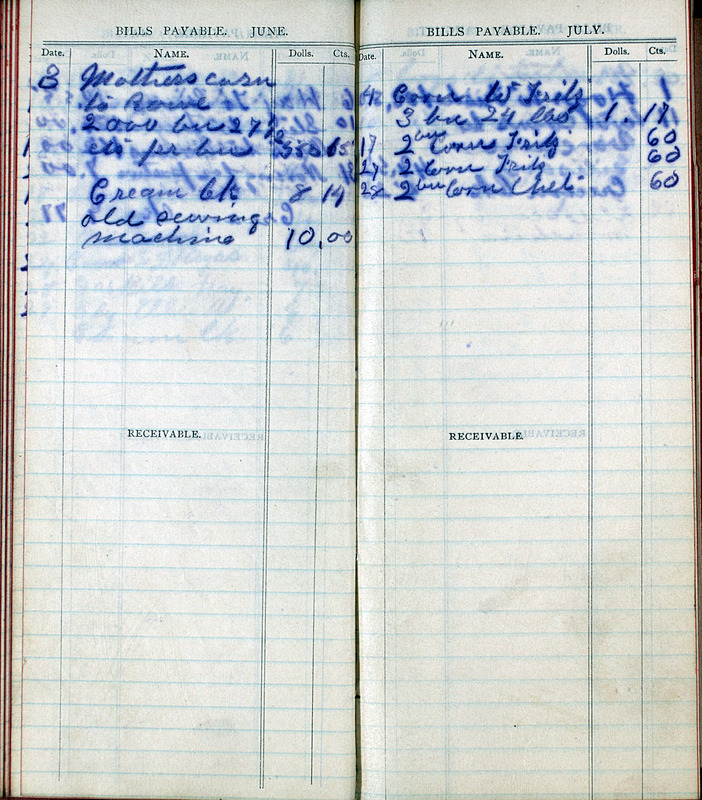 BILLS PAYABLE. JUNE.
Date. NAME. Dolls. Cts.
3 Mattress corn
to Rowe
2000 bu 27½
cts per bu 550
Cream Ck 8 14
old sewing
machine 10.00
RECEIVABLE.
BILLS PAYABLE. JULY.
Date. NAME. Dolls. Cts.
4 Corn to Fritz
3 bu 24 lbs 1.17
17 2 bu Corn Fritz 60
27 2 Corn Fritz 60
28 2 bu Corn Chet 60
RECEIVABLE.